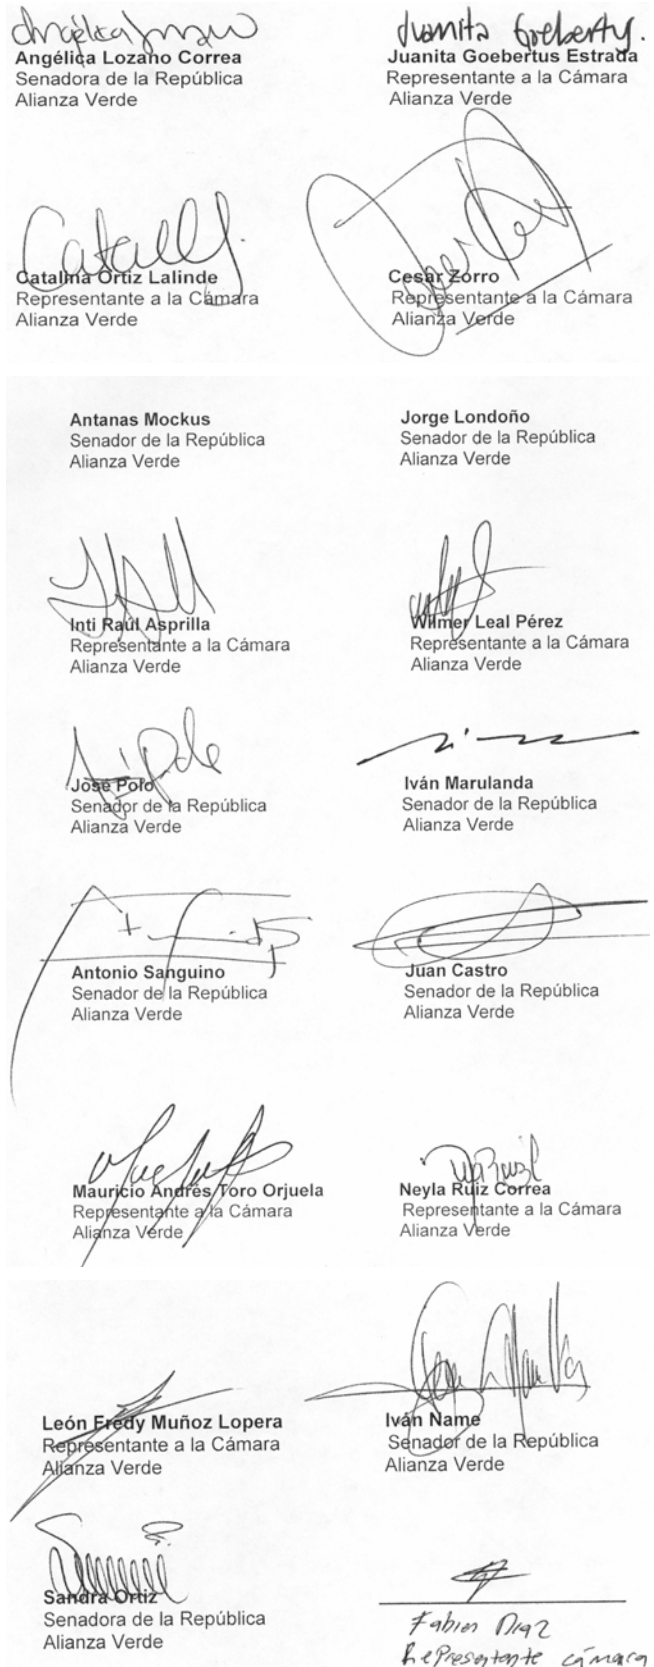 Angélica Lozano
Juanita Goebertus.
Angélica Lozano Correa
Senadora de la República
Alianza Verde
Juanita Goebertus Estrada
Representante a la Cámara
Alianza Verde
Catalina Ortiz Lalinde
Representante a la Cámara
Alianza Verde
Cesar Zorro
Representante a la Cámara
Alianza Verde
Antanas Mockus
Senador de la República
Alianza Verde
Jorge Londoño
Senador de la República
Alianza Verde
Inti Raúl Asprilla
Representante a la Cámara
Alianza Verde
Wilmer Leal Pérez
Representante a la Cámara
Alianza Verde
José Polo
Senador de la República
Alianza Verde
Iván Marulanda
Senador de la República
Alianza Verde
Antonio Sanguino
Senador de la República
Alianza Verde
Juan Castro
Senador de la República
Alianza Verde
Mauricio Andrés Toro Orjuela
Representante a la Cámara
Alianza Verde
Neyla Ruiz Correa
Representante a la Cámara
Alianza Verde
León Fredy Muñoz Lopera
Representante a la Cámara
Alianza Verde
Iván Name
Senador de la República
Alianza Verde
Sandra Ortiz
Senadora de la República
Alianza Verde
Fabian Diaz
Representante cámara